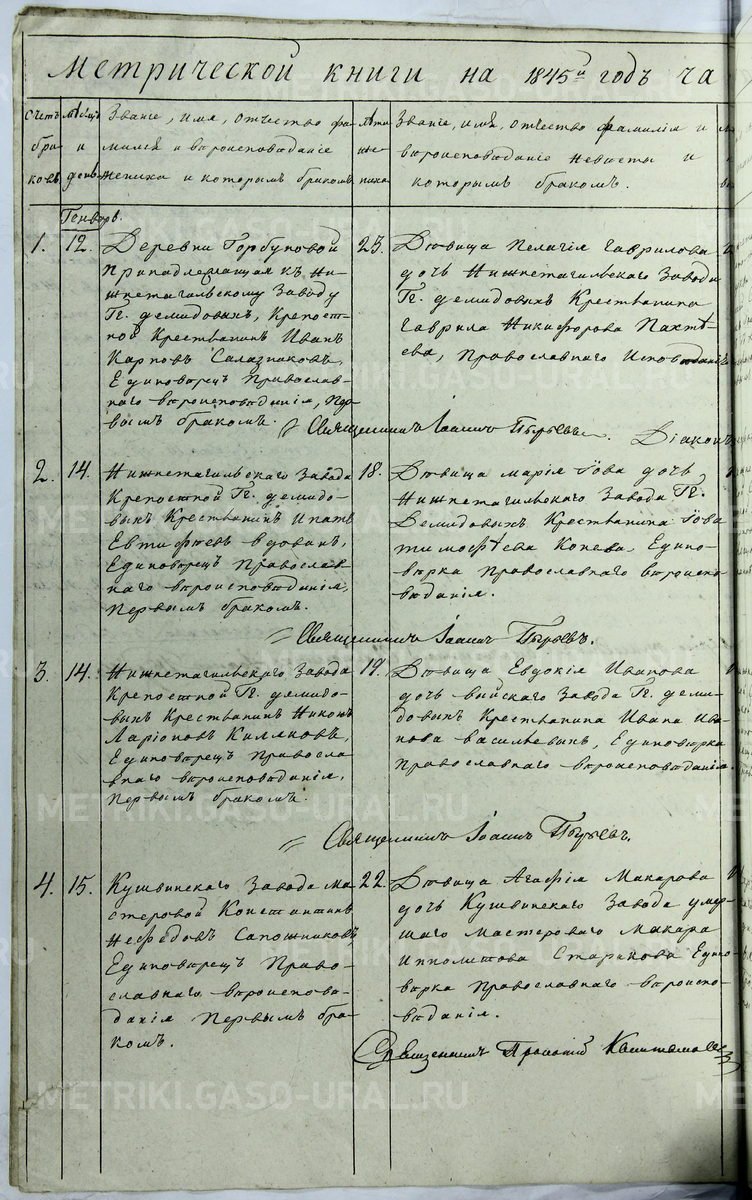 Метрической книги на 1845й годъ ча
Счетъ браковъ
Мѣсяцъ и день
Званіе, имя, отчество фа-
милія и вѣроисповѣданіе
жениха и которымъ бракомъ
Лѣта
жениха
Званіе, имя, отчество фамилія и
вѣроисповѣданіе невѣсты и
которымъ бракомъ.
Генварь.
1. 12.
Деревни Горбуновой
Принадлежащая къ Ни-
жнетагильскому Заводу
Гг. демидовыхъ, Крепост-
ной Крестьянинъ Иванъ
Карповъ Салазниковъ,
Единоверецъ Православ-
наго вѣроисповѣданія, пер-
вымъ бракомъ.
23.
Дѣвица Пелагія Гаврилова
дочь Нижнетагильскаго Завода
Гг. демидовыхъ Крестьянина
Гаврила Никифорова Пахтѣ-
ева, Православнаго Исповѣданія
Священникъ Іоаннъ Пырьевъ. Діаконъ
2. 14.
Нижнетагильскаго Завода
Крепостной Гг. демидо-
выхъ Крестьянинъ Ипатъ
Евтифѣевъ вдовинъ,
Единоверецъ Православ-
наго вѣроисповѣданія,
первымъ бракомъ.
18.
Дѣвица марія Іова дочь
Нижнетагильскаго Завода Гг.
Демидовыхъ Крестьянина Іова
тимофѣева Конева, Едино-
вѣрка Православнаго вѣроиспо-
вѣданія.
Священникъ Іоаннъ Пырьевъ.
3. 14.
Нижнетагильскаго Завода
Крепостной Гг. демидо-
выхъ Крестьянинъ Никонъ
Ларіоновъ
Единоверецъ Правосла-
внаго вѣроисповѣданія,
первымъ бракомъ.
19.
Дѣвица Евдокія Иванова
дочь выйскаго Завода Гг. деми-
довыхъ Крестьянина Ивана Ива-
нова васильевыхъ, Единовѣрка
Православнаго вѣроисповѣданія.
Священникъ Іоаннъ Пырьевъ.
4. 15.
Кушвинскаго Завода ма-
стеровой Константинъ
Нефедовъ Сапожниковъ
Единоверецъ Право-
славнаго вѣроиспове-
данія первымъ бра-
комъ.
22.
Дѣвица Агафія Макарова
дочь Кушвинскаго Завода умер-
шаго мастероваго Макара
ипполитова Старикова Едино-
вѣрка православнаго вѣроиспо-
вѣданія.
Священникъ
METRIKI.GASO-URAL.RU